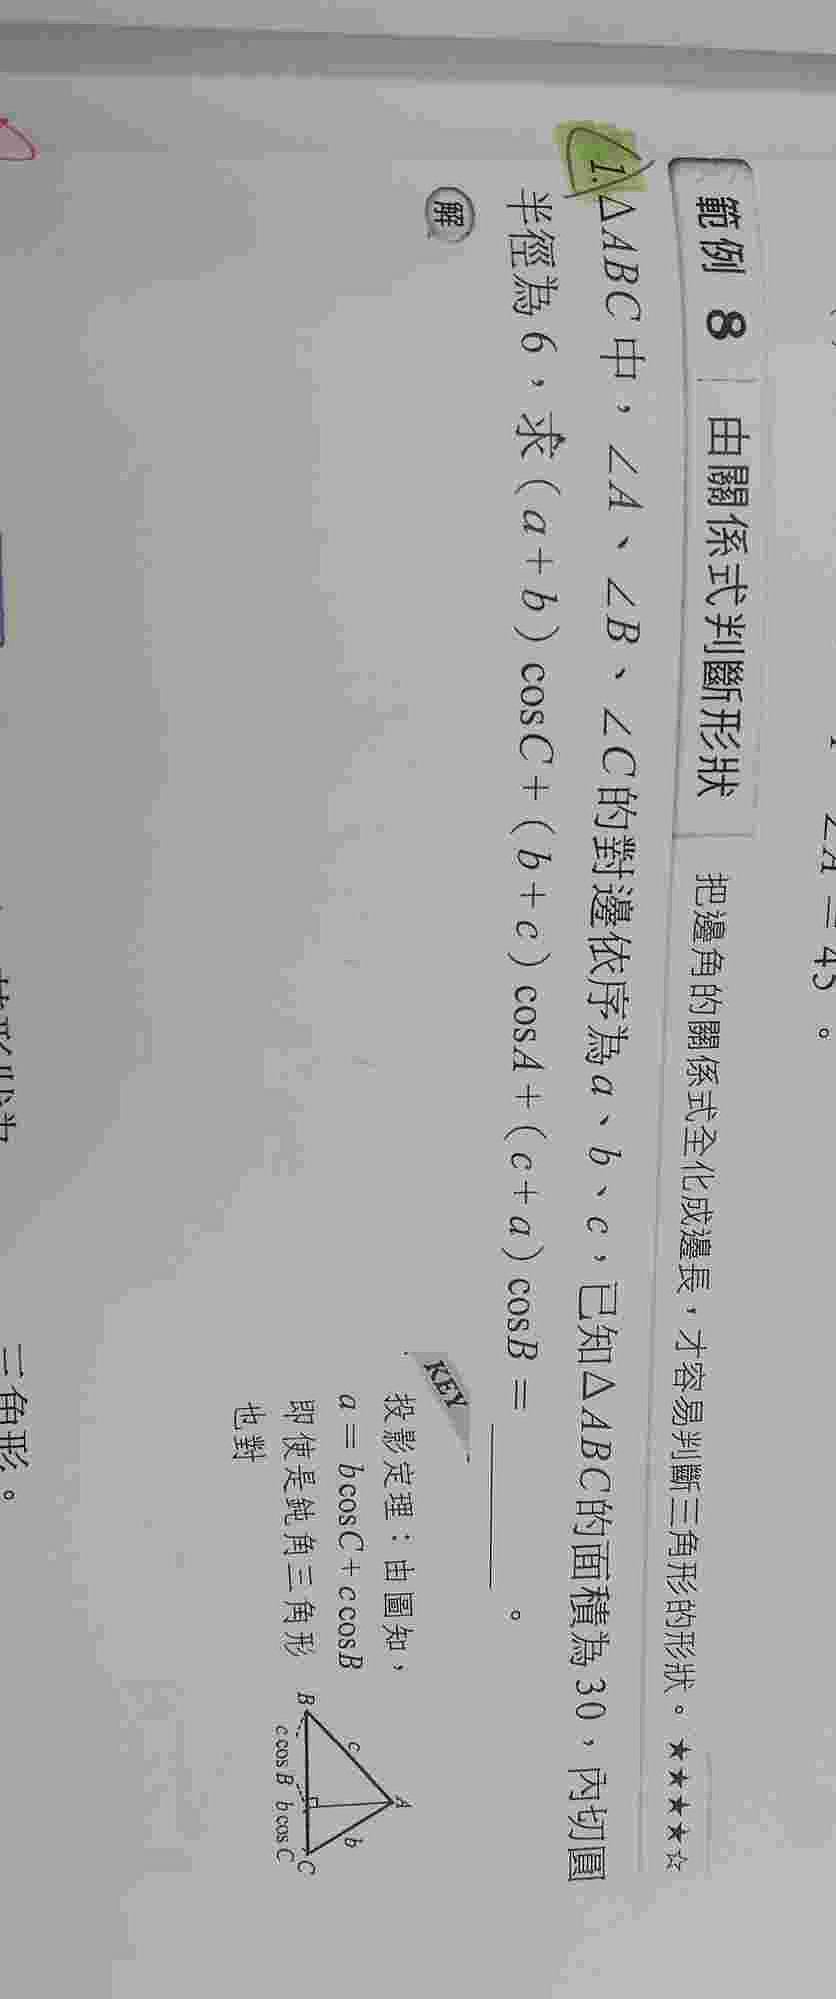 ∠A＝45°。
範例 8 由關係式判斷形狀 把邊角的關係式全化成邊長，才容易判斷三角形的形狀。★★★★☆
1. △ABC中，∠A、∠B、∠C的對邊依序為a、b、c，已知△ABC的面積為30，內切圓
半徑為6，求(a+b)cosC+(b+c)cosA+(c+a)cosB＝______。
解
KEY
投影定理：由圖知，
a＝bcosC+ccosB
即使是鈍角三角形
也對
A
c
b
B
C
c cos B
b cos C
三角形。